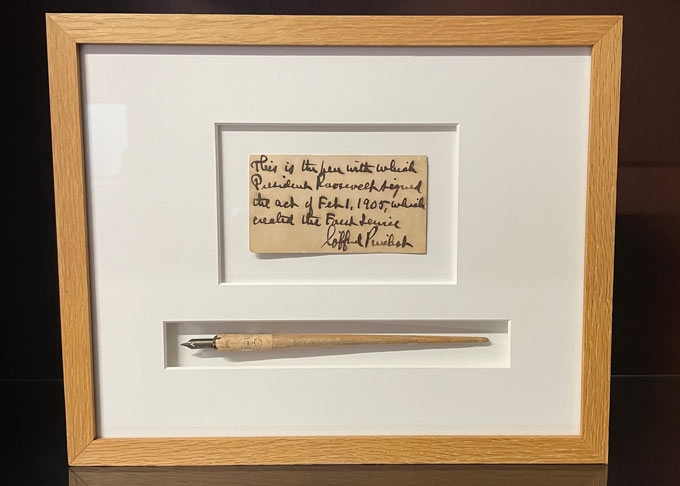 This is the pen with which
President Roosevelt signed
the act of Feb 1, 1905, which
created the Forest Service
Gifford Pinchot